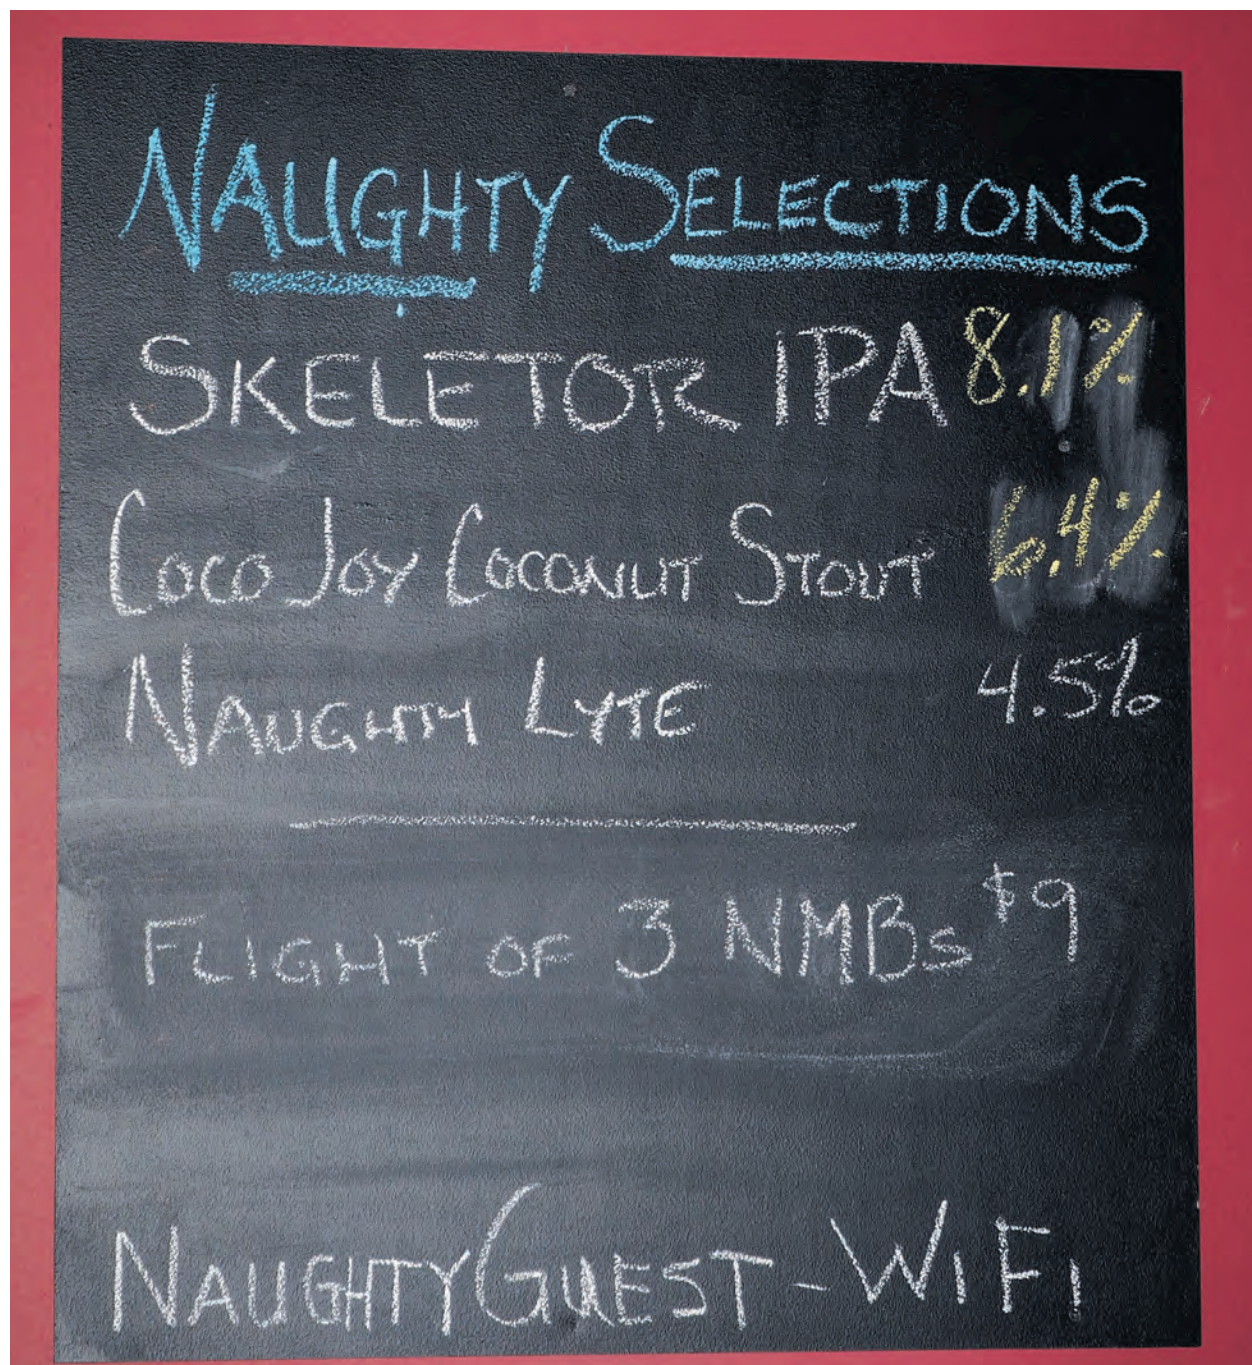 NAUGHTY SELECTIONS
SKELETOR IPA 8.1%
COCO JOY COCONUT STOUT 6.4%
NAUGHTY LYTE 4.5%
FLIGHT OF 3 NMBs $9
NAUGHTYGUEST - WIFI